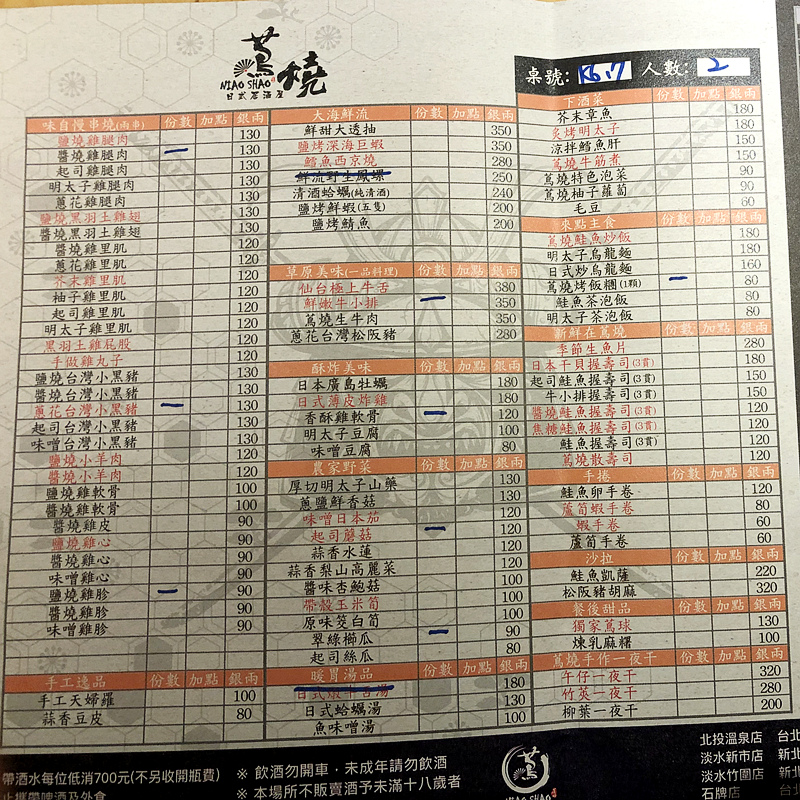 蔦燒
NIAO SHAO
日式居酒屋
桌號: K6.17 人數: 2
味自慢串燒(兩串) 份數 加點 銀兩
鹽燒雞腿肉 130
醬燒雞腿肉 130
起司雞腿肉 130
明太子雞腿肉 130
蔥花雞腿肉 130
鹽燒黑羽土雞翅 130
醬燒黑羽土雞翅 130
醬燒雞里肌 120
蔥花雞里肌 120
芥末雞里肌 120
柚子雞里肌 120
起司雞里肌 120
明太子雞里肌 120
黑羽土雞屁股 120
手做雞丸子 120
鹽燒台灣小黑豬 130
醬燒台灣小黑豬 130
蔥花台灣小黑豬 130
起司台灣小黑豬 130
味噌台灣小黑豬 130
鹽燒小羊肉 120
醬燒小羊肉 120
鹽燒雞軟骨 100
醬燒雞軟骨 100
醬燒雞皮 90
鹽燒雞心 90
醬燒雞心 90
味噌雞心 90
鹽燒雞胗 90
醬燒雞胗 90
味噌雞胗 90
手工逸品 份數 加點 銀兩
手工天婦羅 100
蒜香豆皮 80
大海鮮流 份數 加點 銀兩
鮮甜大透抽 350
鹽烤深海巨蝦 350
鱈魚西京燒 350
鮮流野生鳳螺 250
清酒蛤蠣(純清酒) 240
鹽烤鮮蝦(五隻) 200
鹽烤鯖魚 200
草原美味(一品料理) 份數 加點 銀兩
仙台極上牛舌 380
鮮嫩牛小排 350
蔦燒生牛肉 350
蔥花台灣松阪豬 280
酥炸美味 份數 加點 銀兩
日本廣島牡蠣 180
日式薄皮炸雞 180
香酥雞軟骨 120
明太子豆腐 100
味噌豆腐 80
農家野菜 份數 加點 銀兩
厚切明太子山藥 130
蔥鹽鮮香菇 130
味噌日本茄 120
起司蘑菇 120
蒜香水蓮 120
蒜香梨山高麗菜 120
醬味杏鮑菇 100
帶殼玉米筍 100
原味筊白筍 100
翠綠櫛瓜 90
起司絲瓜 80
暖胃湯品 份數 加點 銀兩
日式燉牛舌湯 180
日式蛤蠣湯 130
魚味噌湯 100
下酒菜 份數 加點 銀兩
芥末章魚 180
炙烤明太子 180
涼拌鱈魚肝 150
蔦燒牛筋煮 150
蔦燒特色泡菜 90
蔦燒柚子蘿蔔 90
毛豆 60
來點主食 份數 加點 銀兩
蔦燒鮭魚炒飯 180
明太子烏龍麵 180
日式炒烏龍麵 160
蔦燒烤飯糰(1顆) 80
鮭魚茶泡飯 80
明太子茶泡飯 80
新鮮在蔦燒 份數 加點 銀兩
季節生魚片 280
日本干貝握壽司(3貫) 180
起司鮭魚握壽司(3貫) 150
牛小排握壽司(3貫) 150
醬燒鮭魚握壽司(3貫) 120
焦糖鮭魚握壽司(3貫) 120
鮭魚握壽司(3貫) 120
蔦燒散壽司 120
手捲 份數 加點 銀兩
鮭魚卵手卷 120
蘆筍蝦手卷 80
蝦手卷 60
蘆筍手卷 60
沙拉 份數 加點 銀兩
鮭魚凱薩 220
松阪豬胡麻 320
餐後甜品 份數 加點 銀兩
獨家蔦球 130
煉乳麻糬 100
蔦燒手作一夜干 份數 加點 銀兩
午仔一夜干 320
竹莢一夜干 280
柳葉一夜干 200
帶酒水每位低消700元(不另收開瓶費)
止攜帶啤酒及外食
※ 飲酒勿開車．未成年請勿飲酒
※ 本場所不販賣酒予未滿十八歲者
蔦
NIAO SHAO
北投溫泉店 台北
淡水新市店 新北
淡水竹圍店 新北
石牌店 台北